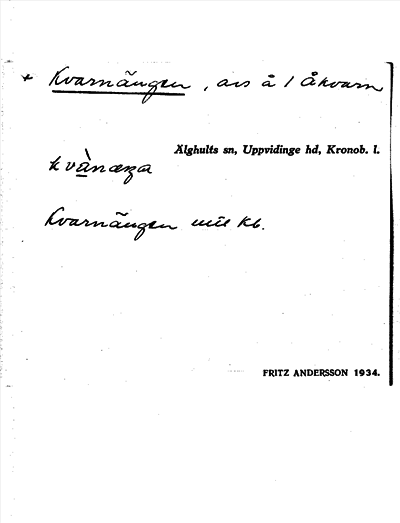 + Kvarnängen, avs å 1 Åkvarn
Älghults sn, Uppvidinge hd, Kronob. l.
Kvarnängen
FRITZ ANDERSSON 1934.